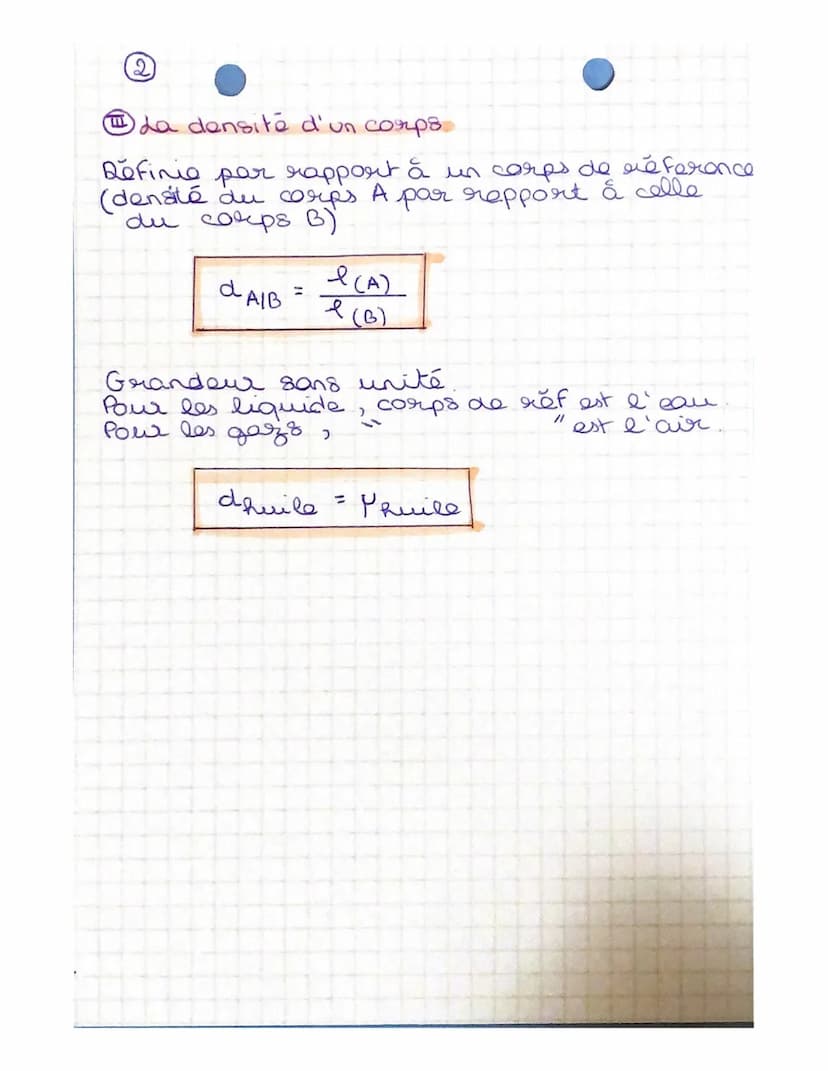 2
III La densité d'un corps
Définie par rapport à un corps de référence
(densité du corps A par rapport à celle
du corps B)
d A/B = ρ(A) / ρ(B)
Grandeur sans unité.
Pour les liquide, corps de réf est l'eau.
Pour les gazs, " " est l'air.
d huile = μ huile